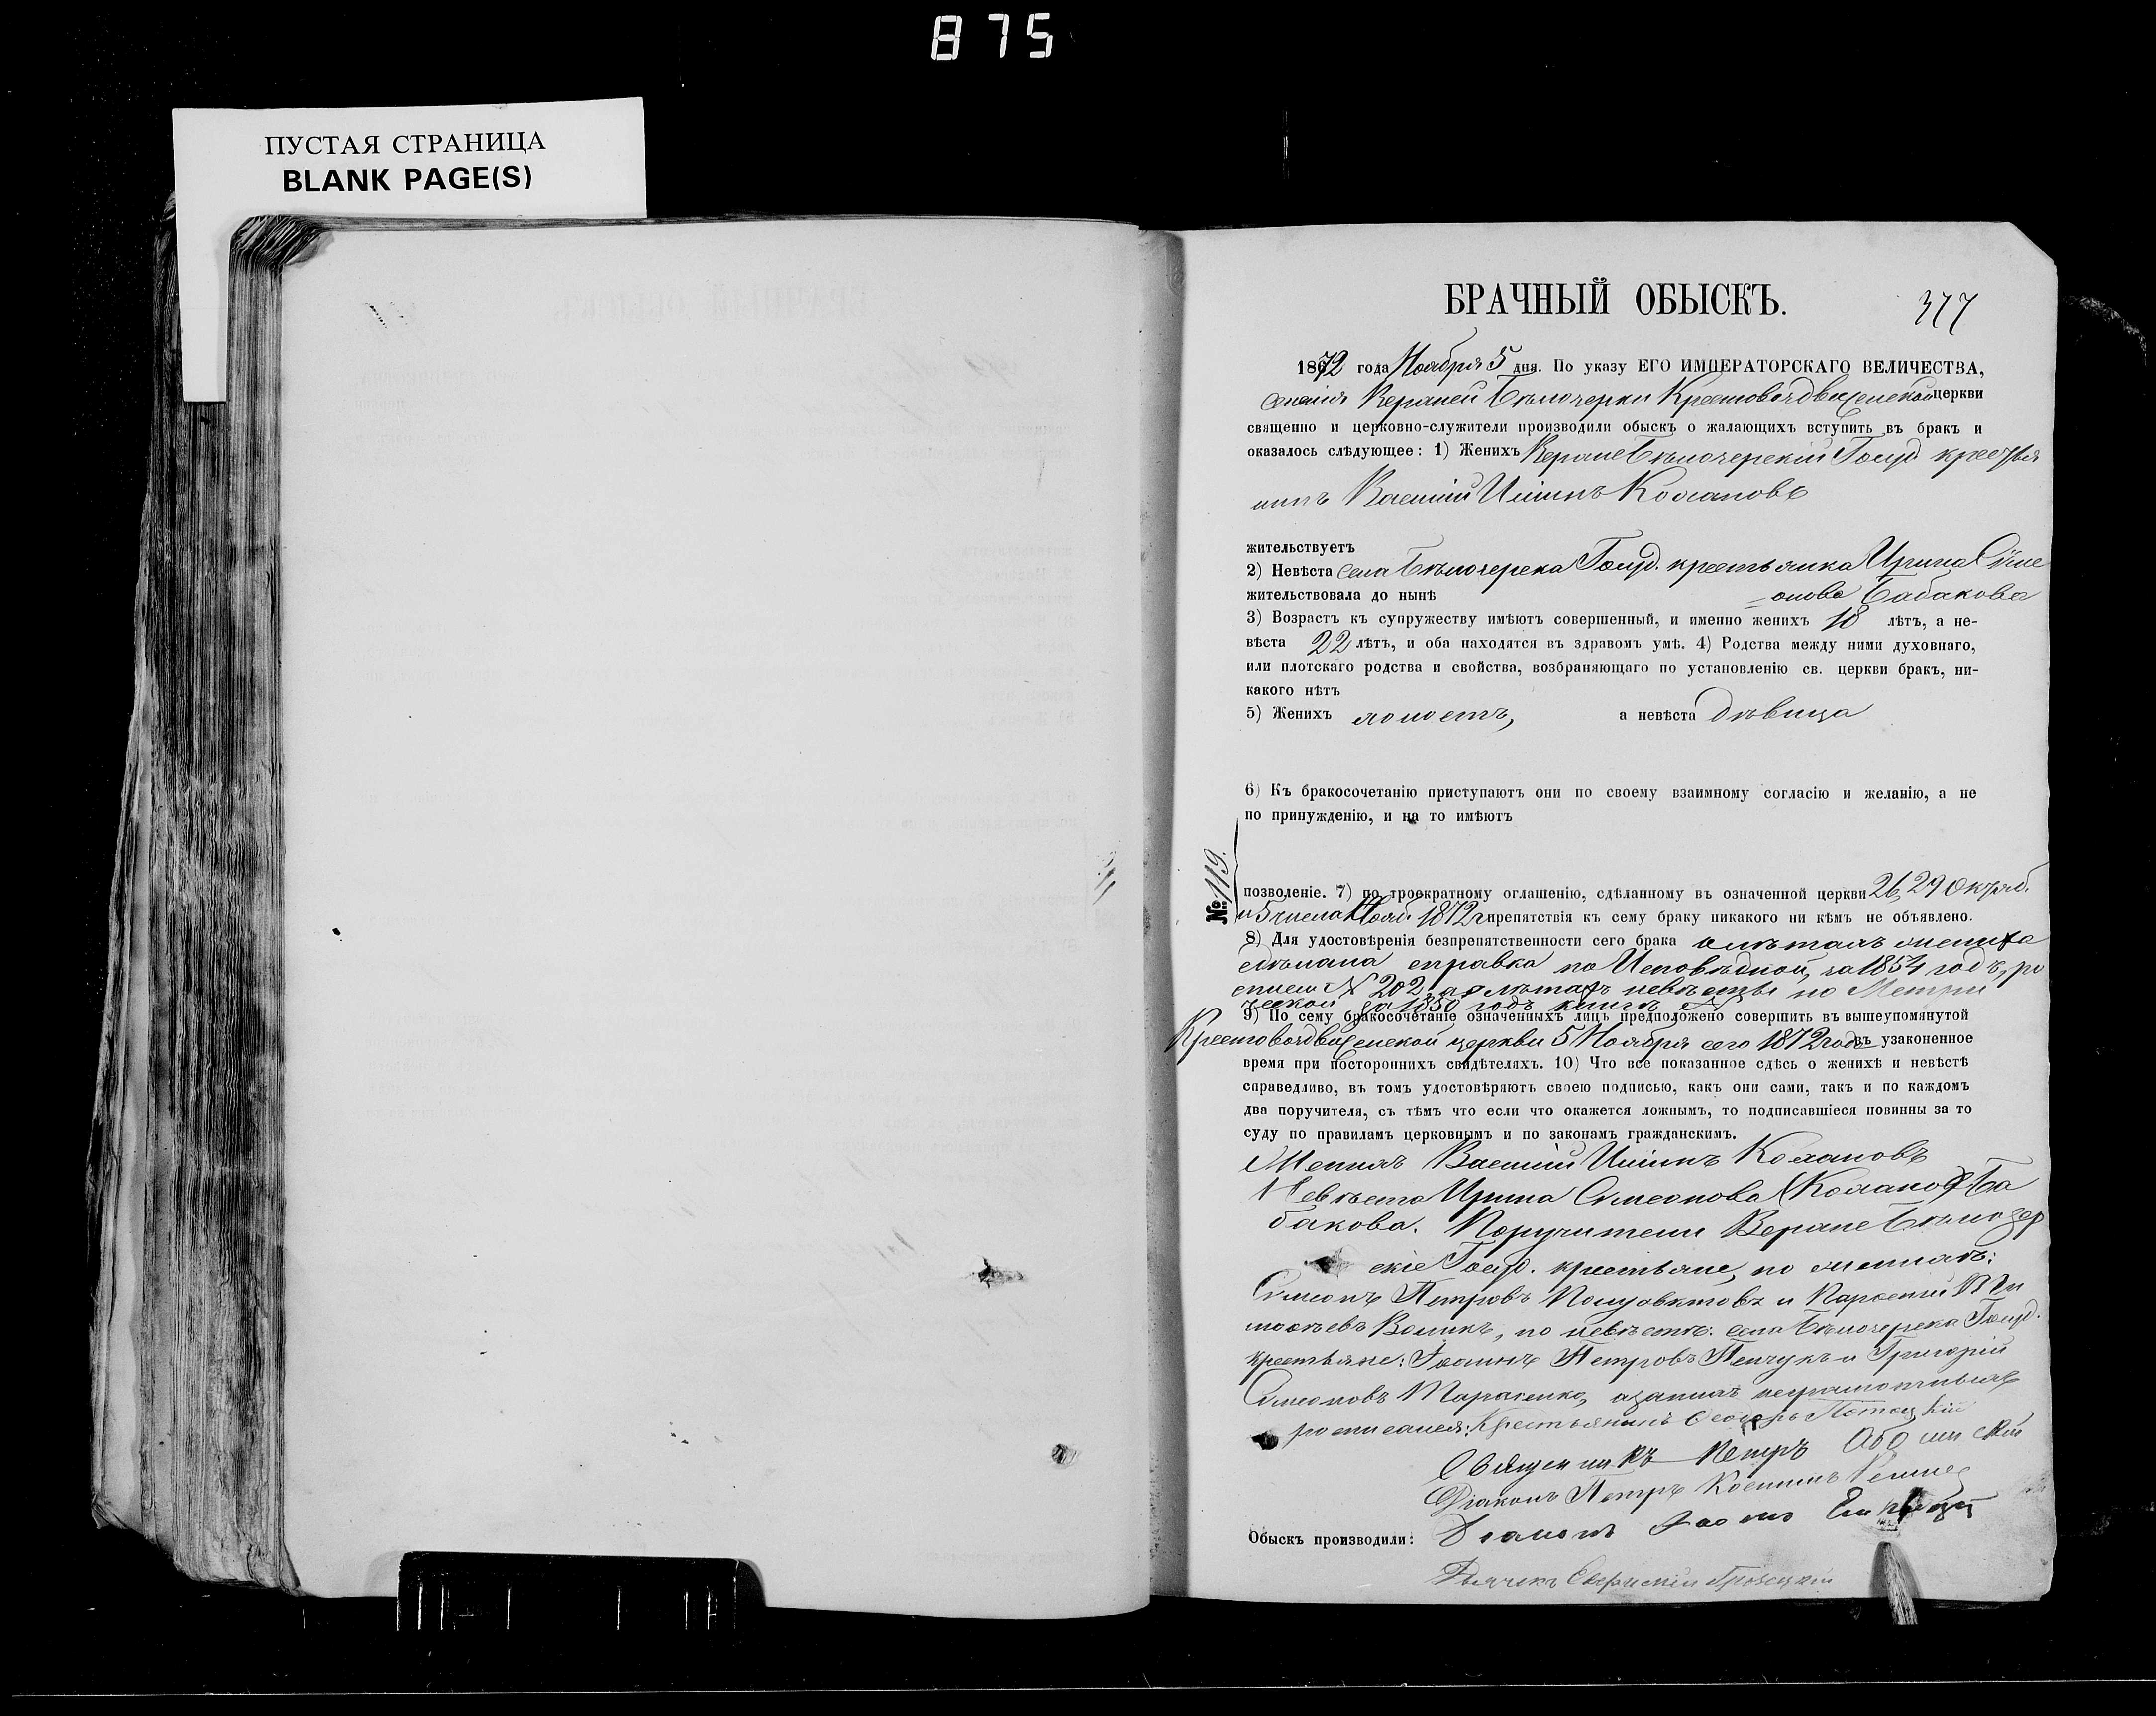 875
ПУСТАЯ СТРАНИЦА
BLANK PAGE(S)
БРАЧНЫЙ ОБЫСКЪ.
377
1872 года Ноября 5 дня. По указу ЕГО ИМПЕРАТОРСКАГО ВЕЛИЧЕСТВА,
Крестовоздвиженской церкви
священно и церковно-служители производили обыскъ о жалающихъ вступить въ бракъ и
оказалось слѣдующее: 1) Женихъ Верхнебѣлозерскій Госуд крестья
нинъ Василій Ильинъ Кохановъ
жительствуетъ
2) Невѣста села Бѣлозерска Госуд. крестьянка Ирина Симе
жительствовала до нынѣ онова Бабакова
3) Возрастъ къ супружеству имѣютъ совершенный, и именно женихъ 18 лѣтъ, а не-
вѣста 22 лѣтъ, и оба находятся въ здравомъ умѣ. 4) Родства между ними духовнаго,
или плотскаго родства и свойства, возбраняющаго по установленію св. церкви бракъ, ни-
какого нѣтъ
5) Женихъ холостъ, а невѣста дѣвица
6) Къ бракосочетанію приступаютъ они по своему взаимному согласію и желанію, а не
по принужденію, и на то имѣютъ
№ 119.
позволеніе. 7) по троекратному оглашенію, сдѣланному въ означенной церкви 26, 29 Октяб.
и 5 числа Нояб 1872 г. препятствія къ сему браку никакого ни кѣмъ не объявлено.
8) Для удостовѣренія безпрепятственности сего брака о лѣтахъ жениха
сдѣлана справка по Исповѣдной, за 1854 годъ, ро
списи № 202, а о лѣтахъ невѣсты по Метри
ческой за 1850 годъ книгѣ №
9) По сему бракосочетаніе означенныхъ лицъ предположено совершить въ вышеупомянутой
Крестовоздвиженской церкви 5 Ноября сего 1872 года въ узаконенное
время при постороннихъ свидѣтеляхъ. 10) Что все показанное сдѣсь о женихѣ и невѣстѣ
справедливо, въ томъ удостовѣряютъ своею подписью, какъ они сами, такъ и по каждомъ
два поручителя, съ тѣмъ что если что окажется ложнымъ, то подписавшіеся повинны за то
суду по правиламъ церковнымъ и по законамъ гражданскимъ.
Женихъ Василій Ильинъ Кохановъ
Невѣста Ирина Симеонова Ба
бакова. Поручители Верхнебѣлозер
скіе Госуд. крестьяне, по женихѣ:
Симеонъ Петровъ и
Воликъ, по невѣстѣ: села Бѣлозерска Госуд.
крестьяне: Іоаннъ Петровъ и Григорій
Симеоновъ Тарасенко, а за нихъ неграмотныхъ
росписался: Крестьянинъ Ѳеодоръ Потоцкій
Священникъ Петръ
Діаконъ Петръ
Обыскъ производили:
Дьячекъ